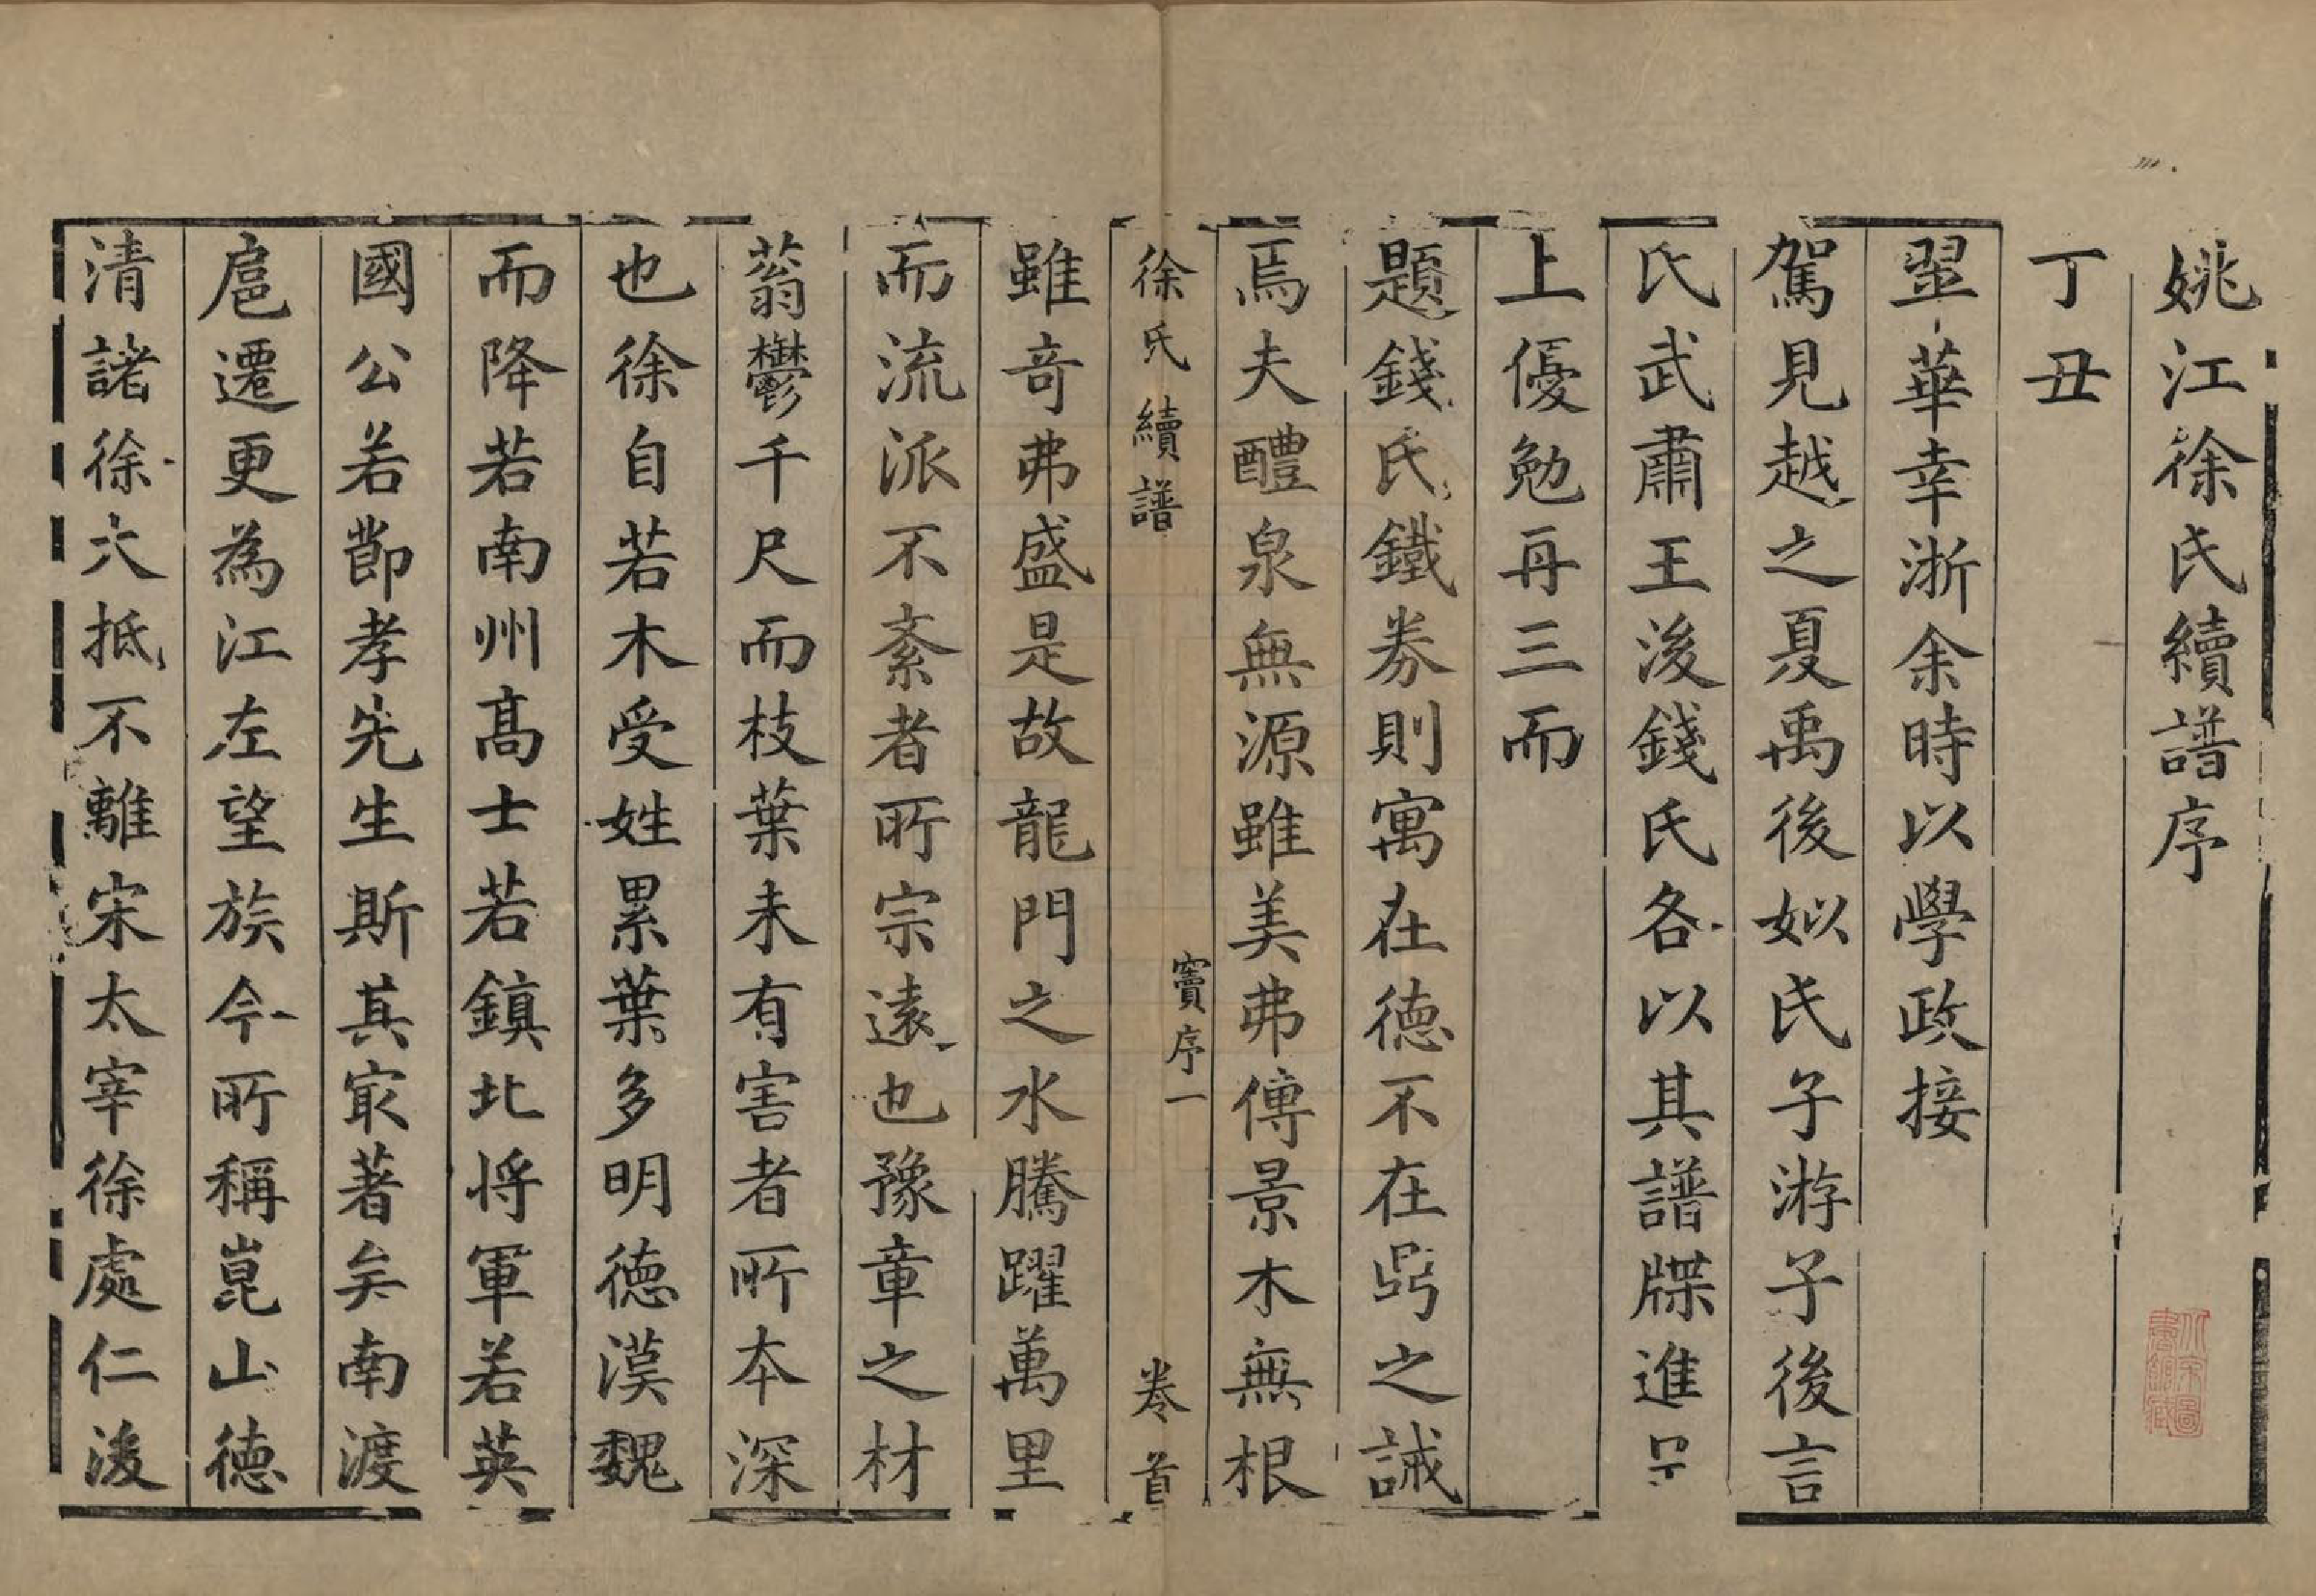 姚江徐氏續譜序
丁丑
翠華幸浙余時以學政接
駕見越之夏禹後姒氏子游子後言
氏武肅王後錢氏各以其譜牒進呈
上優勉再三而
題錢氏鐵券則寓在德不在號之誡
焉夫醴泉無源雖美弗傳景木無根
徐氏續譜
竇序一
卷首
雖奇弗盛是故龍門之水騰躍萬里
而流派不紊者所宗遠也豫章之材
蓊鬱千尺而枝葉未有害者所本深
也徐自若木受姓累葉多明德漢魏
而降若南州高士若鎮北将軍若英
國公若節孝先生斯其㝡著矣南渡
扈遷更為江左望族今所稱崑山德
清諸徐大抵不離宋太宰徐處仁後